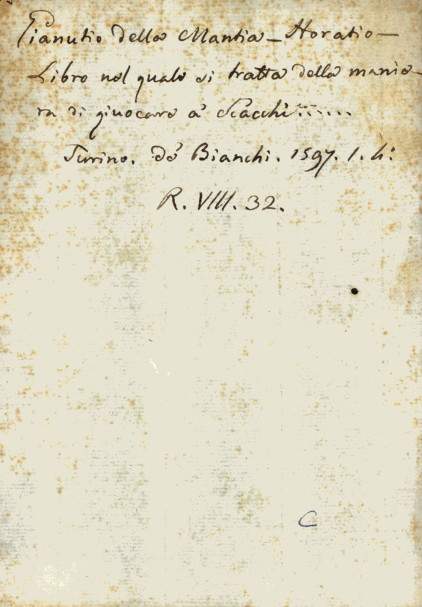 Gianutio della Mantia - Horatio -
Libro nel quale si tratta della manie-
ra di giuocare à Scacchi......
Turino. de' Bianchi. 1597. 1. 4:
R. VIII. 32.
C